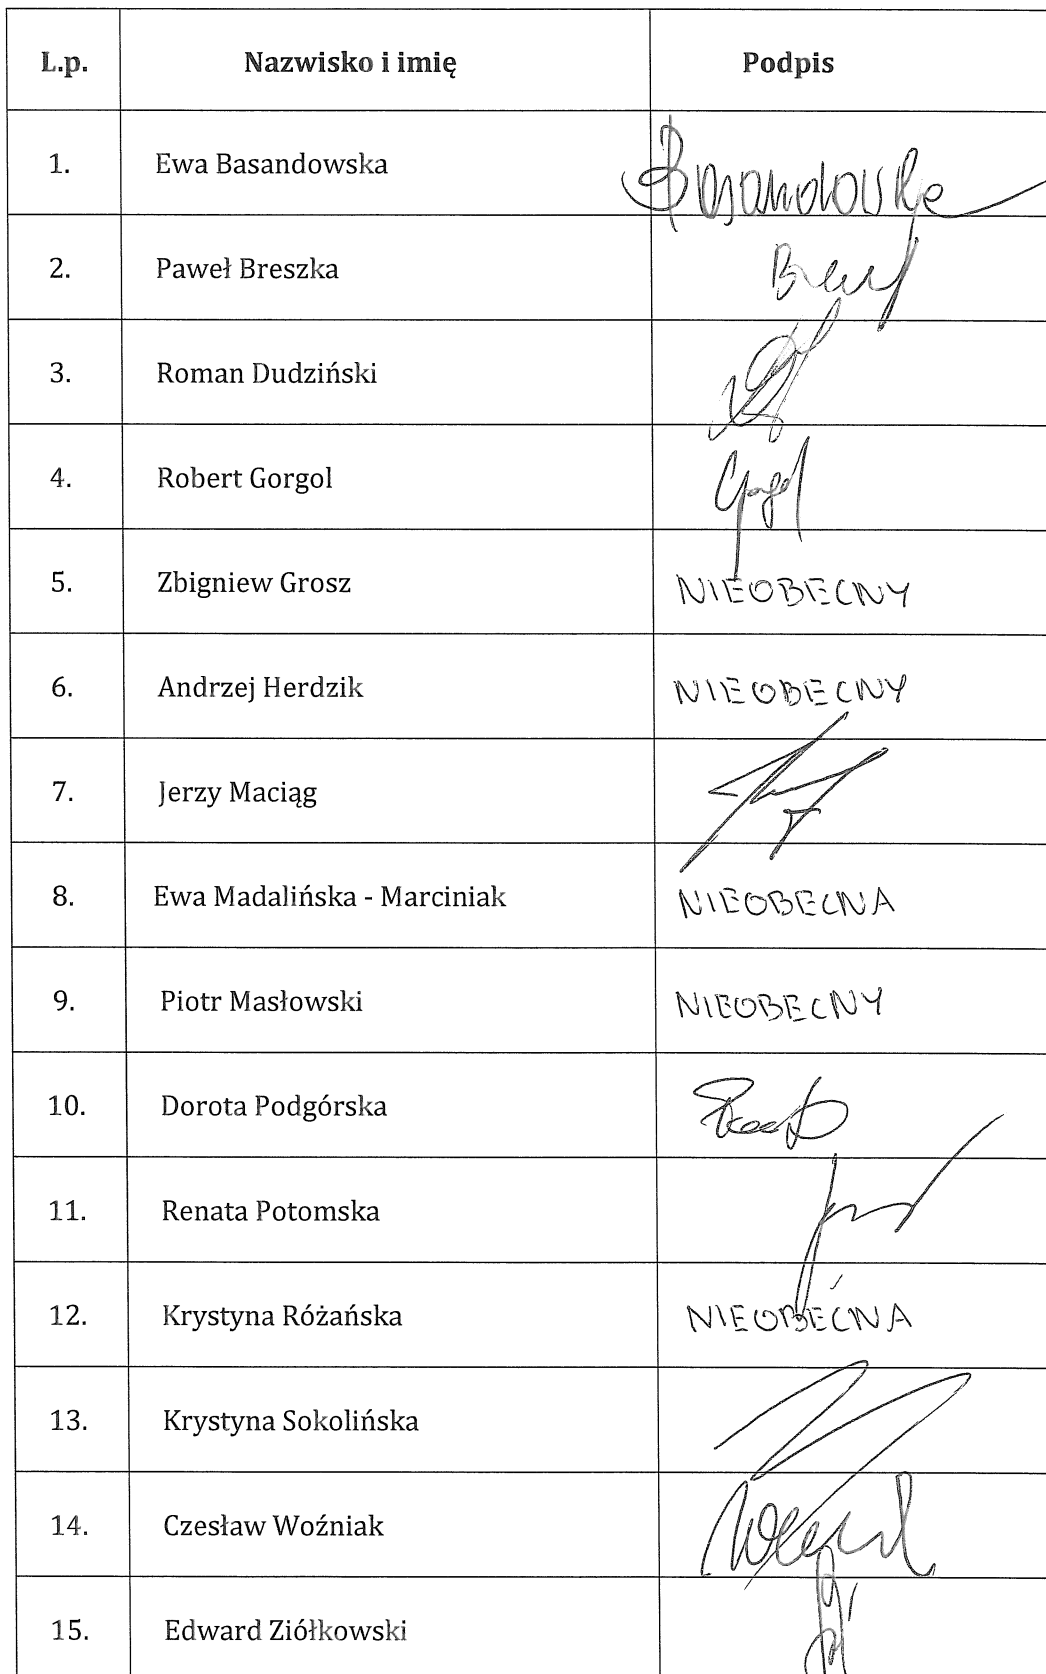 L.p. Nazwisko i imię Podpis
1. Ewa Basandowska Basandowska
2. Paweł Breszka
3. Roman Dudziński
4. Robert Gorgol Gorgol
5. Zbigniew Grosz NIEOBECNY
6. Andrzej Herdzik NIEOBECNY
7. Jerzy Maciąg
8. Ewa Madalińska - Marciniak NIEOBECNA
9. Piotr Masłowski NIEOBECNY
10. Dorota Podgórska
11. Renata Potomska
12. Krystyna Różańska NIEOBECNA
13. Krystyna Sokolińska
14. Czesław Woźniak
15. Edward Ziółkowski